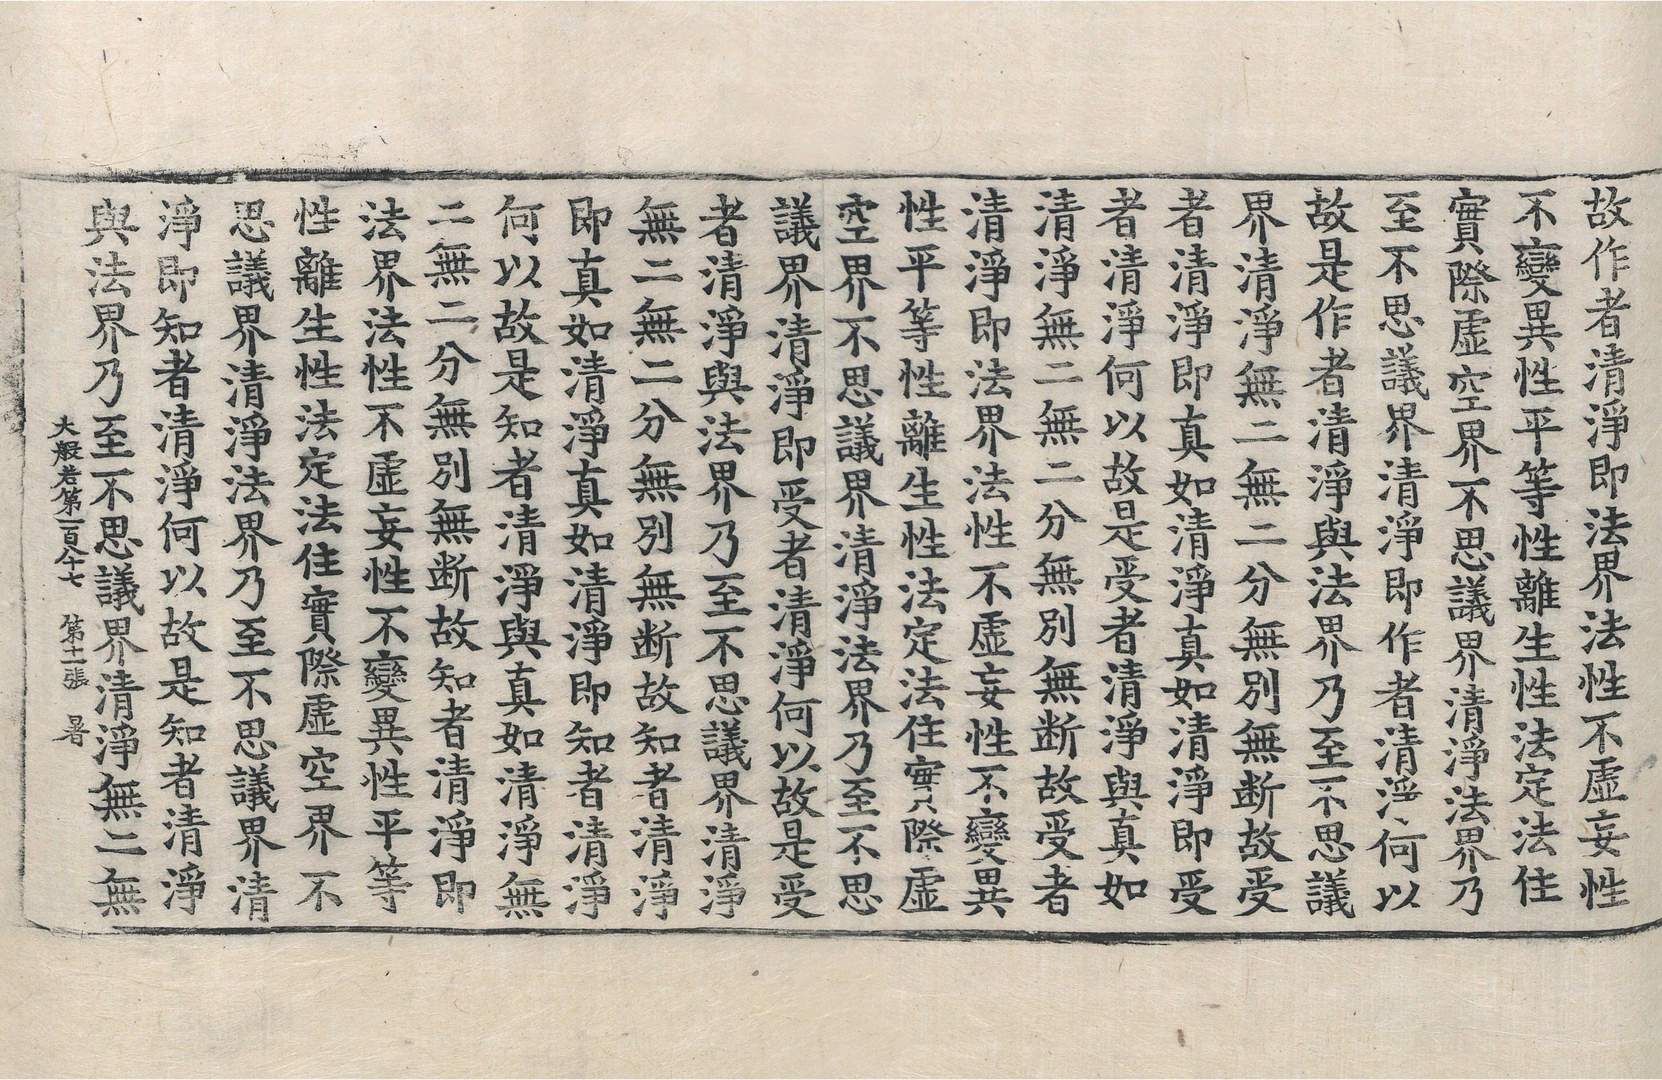 故作者清淨即法界法性不虛妄性
不變異性平等性離生性法定法住
實際虛空界不思議界清淨法界乃
至不思議界清淨即作者清淨何以
故是作者清淨與法界乃至不思議
界清淨無二無二分無別無断故受
者清淨即真如清淨真如清淨即受
者清淨何以故是受者清淨與真如
清淨無二無二分無別無断故受者
清淨即法界法性不虛妄性不變異
性平等性離生性法定法住實際虛
空界不思議界清淨法界乃至不思
議界清淨即受者清淨何以故是受
者清淨與法界乃至不思議界清淨
無二無二分無別無断故知者清淨
即真如清淨真如清淨即知者清淨
何以故是知者清淨與真如清淨無
二無二分無別無断故知者清淨即
法界法性不虛妄性不變異性平等
性離生性法定法住實際虛空界不
思議界清淨法界乃至不思議界清
淨即知者清淨何以故是知者清淨
與法界乃至不思議界清淨無二無
大般若第一百八十七　第十一張　暑